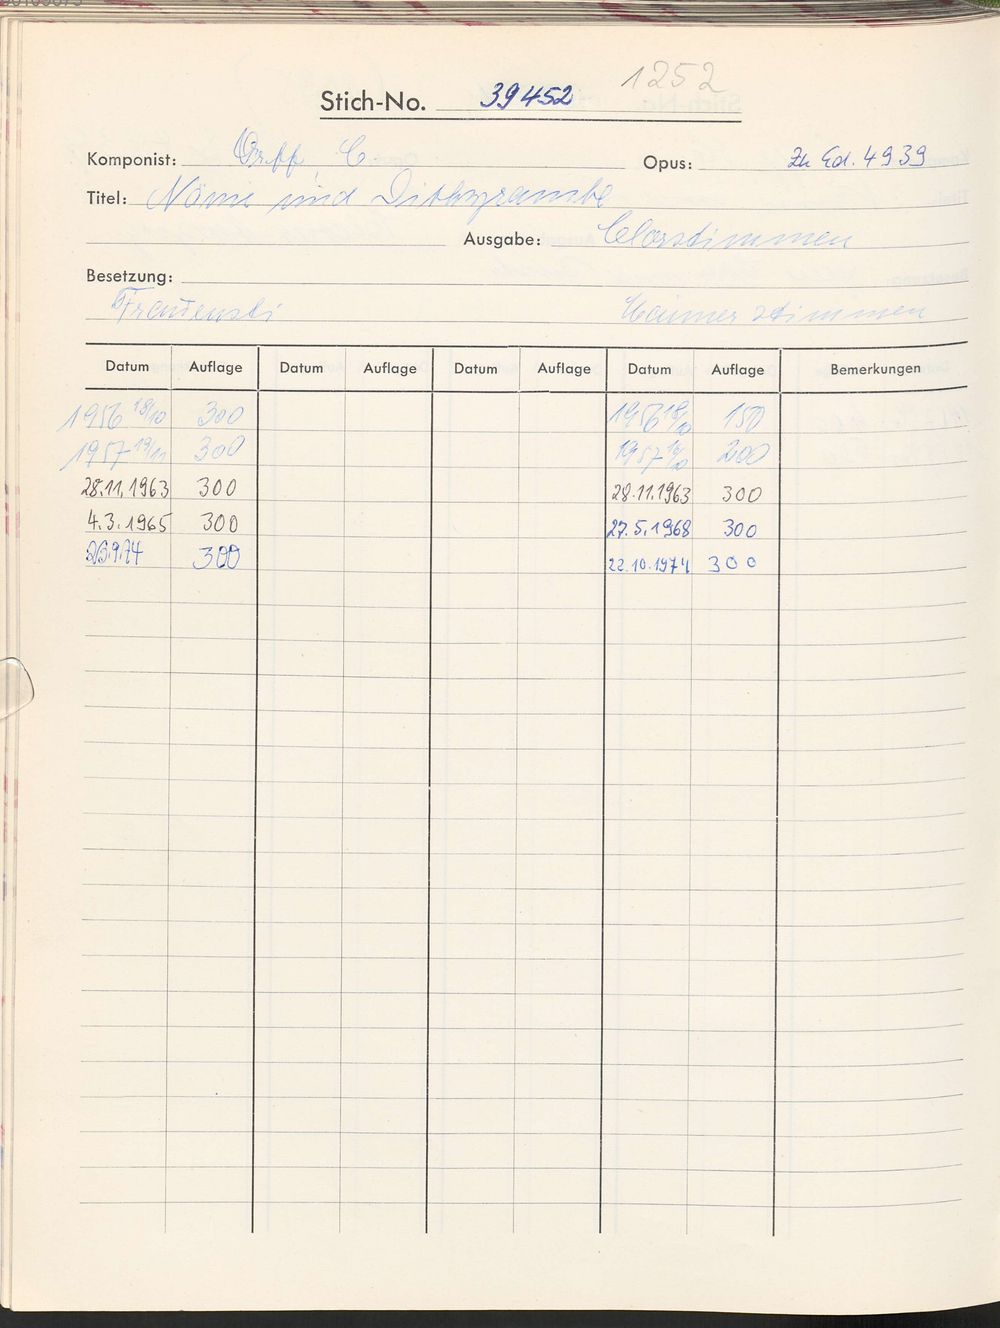 1252
Stich-No. 39452
Komponist: Orff, C. Opus: Zu Ed. 4939
Titel: Nänie und Dithyrambe
Ausgabe: Chorstimmen
Besetzung:
Frauenst. Männerstimmen
Datum Auflage Datum Auflage Datum Auflage Datum Auflage Bemerkungen
1956 18/10 300 1956 18/10 150
1957 19/11 300 1957 200
28.11.1963 300 28.11.1963 300
4.3.1965 300 27.5.1968 300
23.9.74 300 22.10.1974 300